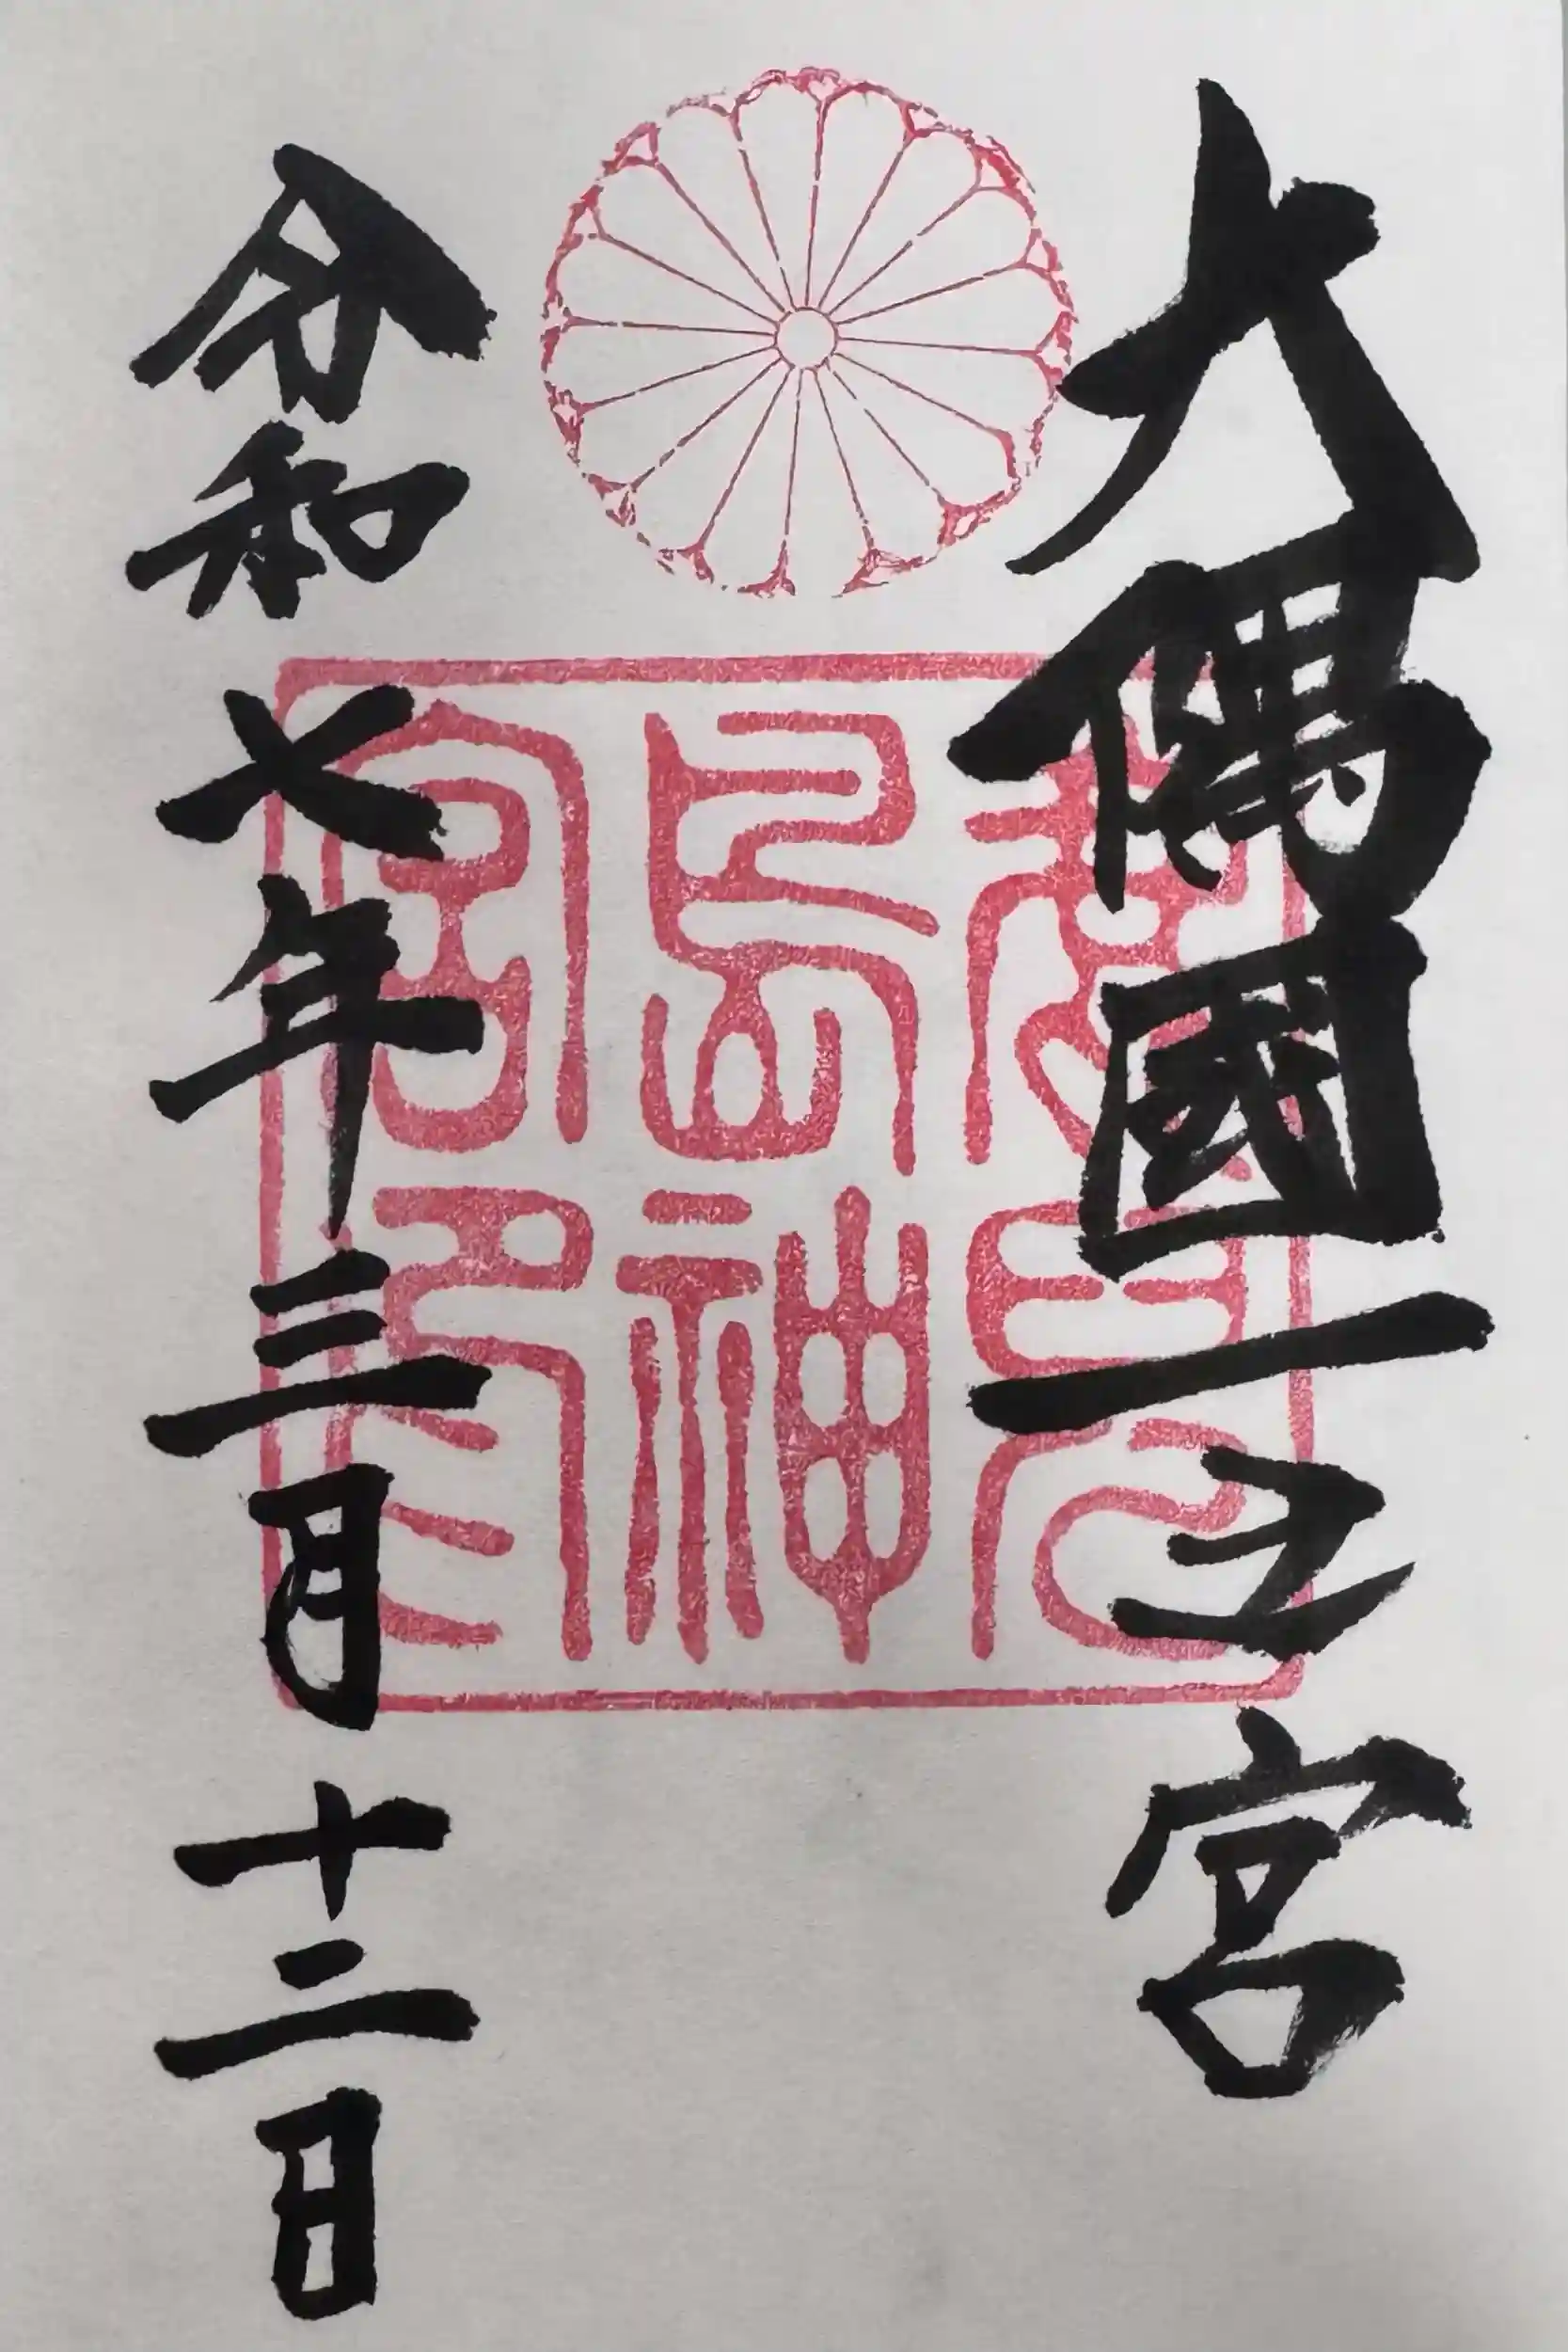 大隅國一之宮
鹿児
島神
宮印
令和七年三月十二日